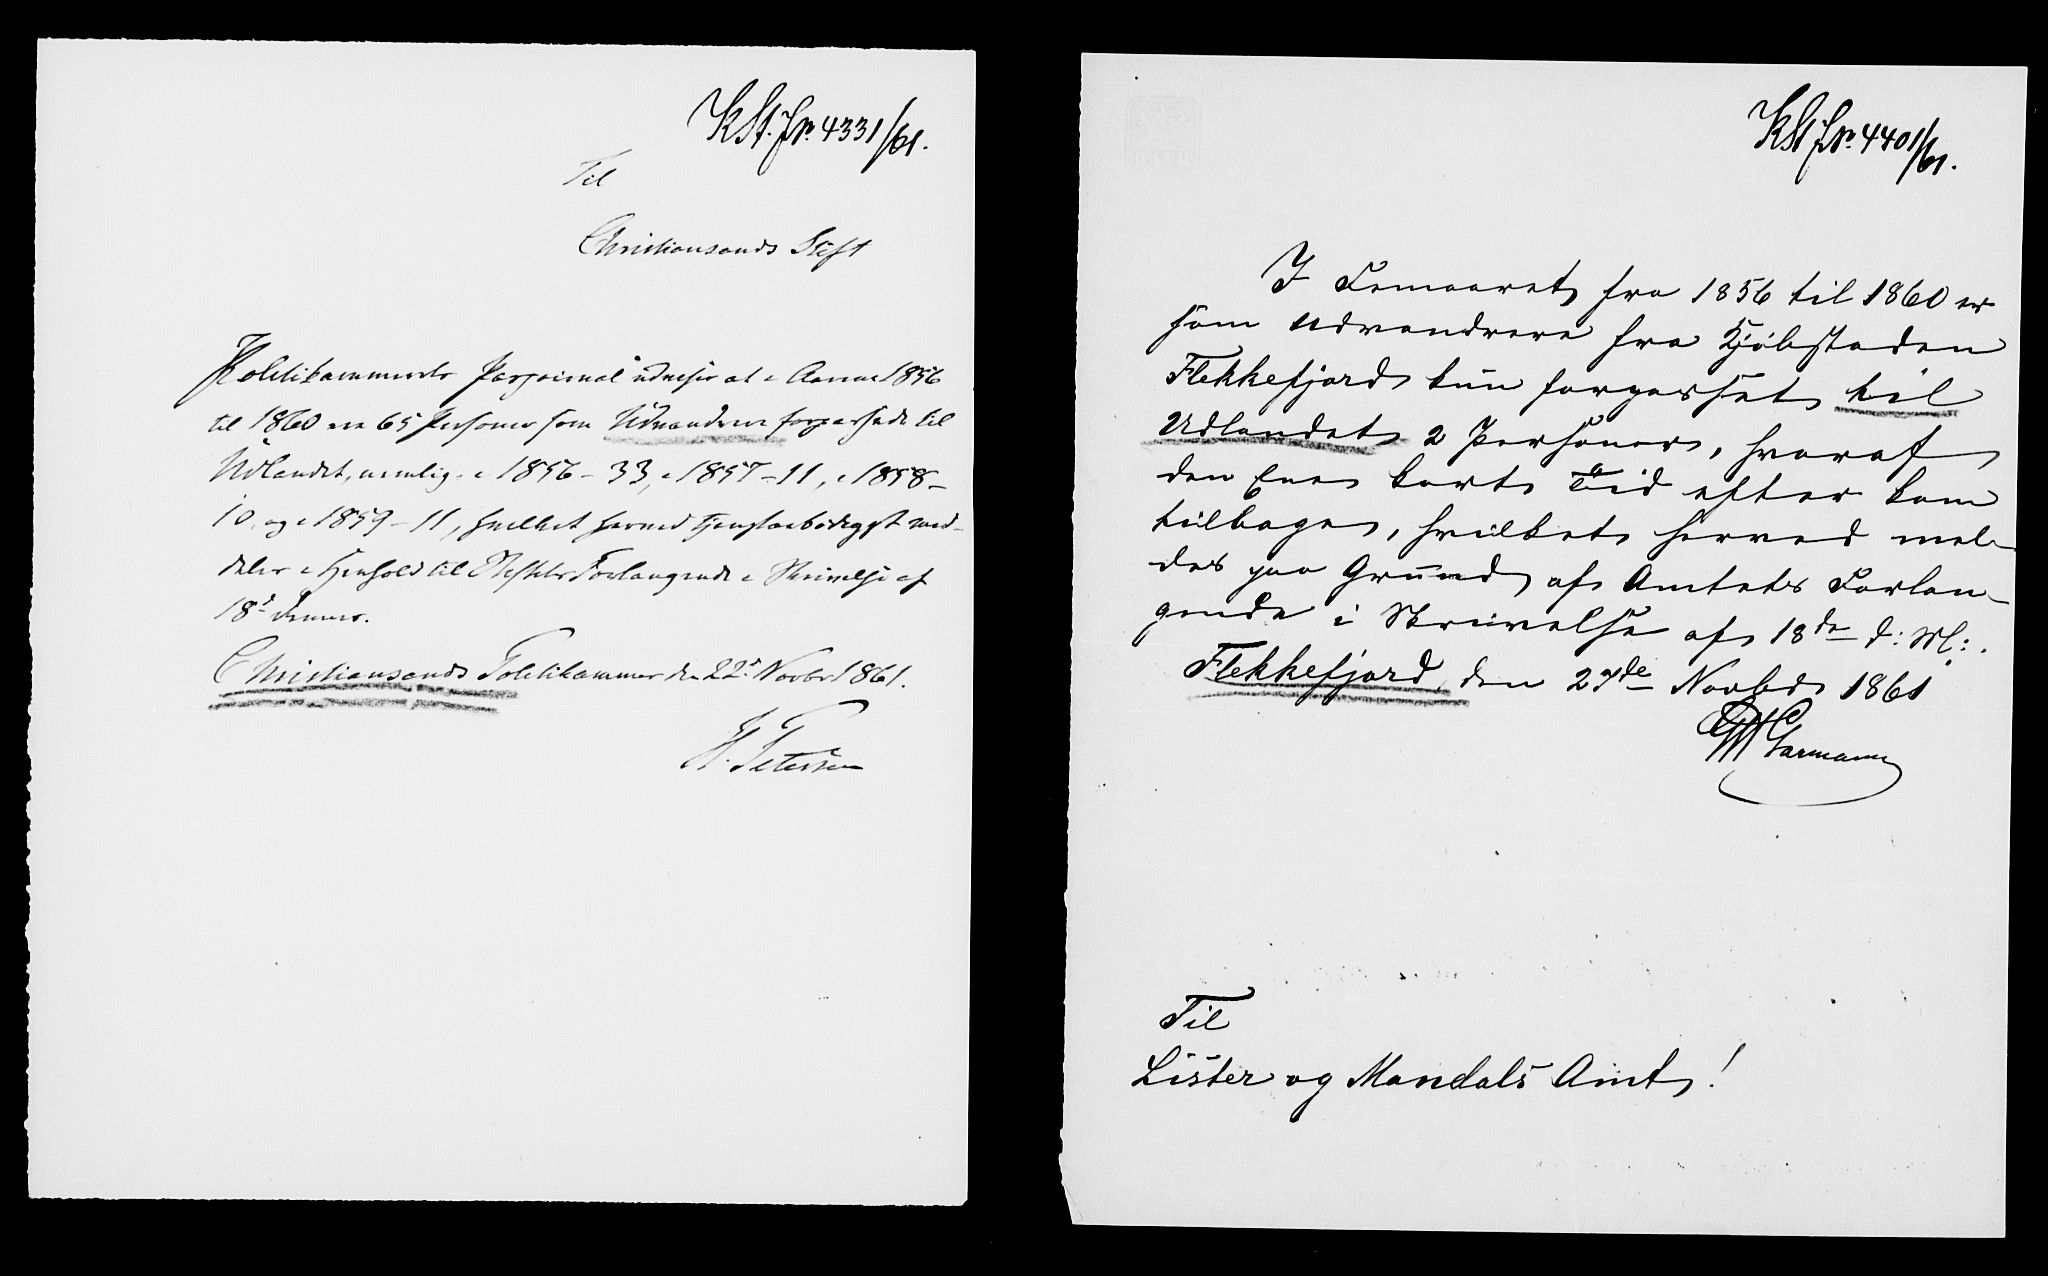 KSt. Jn. 4331/61.
Til
Christiansands Stift
Politikammerets Pasjournal udviser at i Aarene 1856
til 1860 ere 65 Personer som Udvandrere forpassede til
Udlandet, nemlig i 1856 – 33, i 1857 – 11, i 1858 –
10, og i 1859 – 11, hvilket herved tjenstærbødigst med-
deles i Henhold til Stiftets Forlangende i Skrivelse af
18d dennes.
Christiansands Politikammer den 22d Novbr 1861.
H. Petersen
KSt Jn. 4401/61.
I Femaaret fra 1856 til 1860 er
som Udvandrere fra Kjøbstaden
Flekkefjord kun forpasset til
Udlandet 2 Personer, hvoraf
den Ene kort Tid efter kom
tilbage, hvilket herved mel-
des paa Grund af Amtets Forlan-
gende i Skrivelse af 18de d: M:.
Flekkefjord, den 27de Novbr 1861
Garmann
Til
Lister og Mandals Amt!